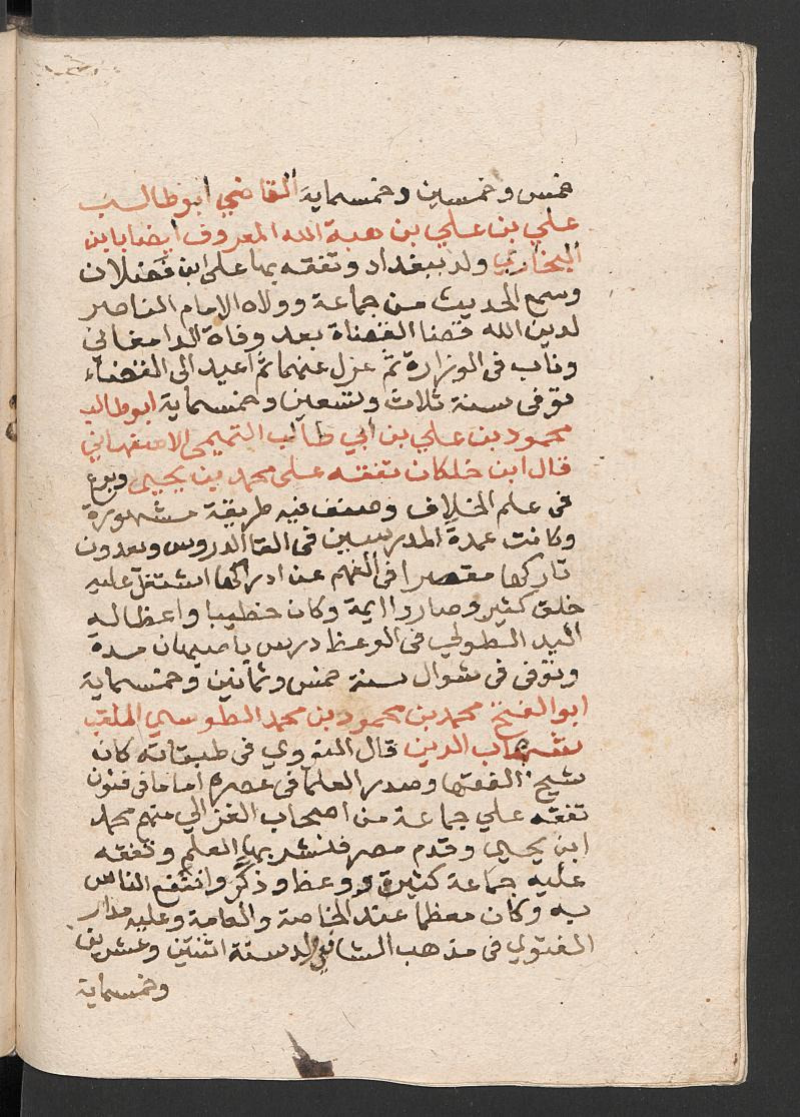 خمس وخمسين وخمسماية القاضي ابو طالب
علي بن علي بن هبة الله المعروف ايضا بابن
البخاري ولد ببغداد وتفقه بها على ابن فضلان
وسمع الحديث من جماعة وولاه الامام الناصر
لدين الله قضا القضاة بعد وفاة الدامغاني
وناب في الوزارة ثم عزل عنهما ثم اعيد الى القضاء
توفى سنة ثلاث وتسعين وخمسماية ابو طالب
محمود بن علي بن ابي طالب التميمي الاصفهاني
قال ابن خلكان تفقه على محمد بن يحيى وبرع
في علم الخلاف وصنف فيه طريقة مشهورة
وكانت عمدة المدرسين في القا الدروس ويعدون
تاركها مقصرا في الفهم عن ادراكها اشتغل عليه
خلق كثير وصاروا ايمة وكان خطيبا واعظا له
اليد الطولى في الوعظ درس باصبهان مدة
وتوفى في شوال سنة خمس وثمانين وخمسماية
ابو الفتح محمد بن محمود بن محمد الطوسي الملقب
بشهاب الدين قال النووي في طبقاته كان
شيخ الفقها وصدر العلما في عصره اماما في فنون
تفقه علي جماعة من اصحاب الغزالي منهم محمد
ابن يحيى وقدم مصر فنشر بها العلم وتفقه
عليه جماعة كثيرة ووعظ وذكر وانتفع الناس
به وكان معظما عند الخاصة والعامة وعليه مدار
الفتوي في مذهب الشافعي ولد سنة اثنتين وعشرين
وخمسماية